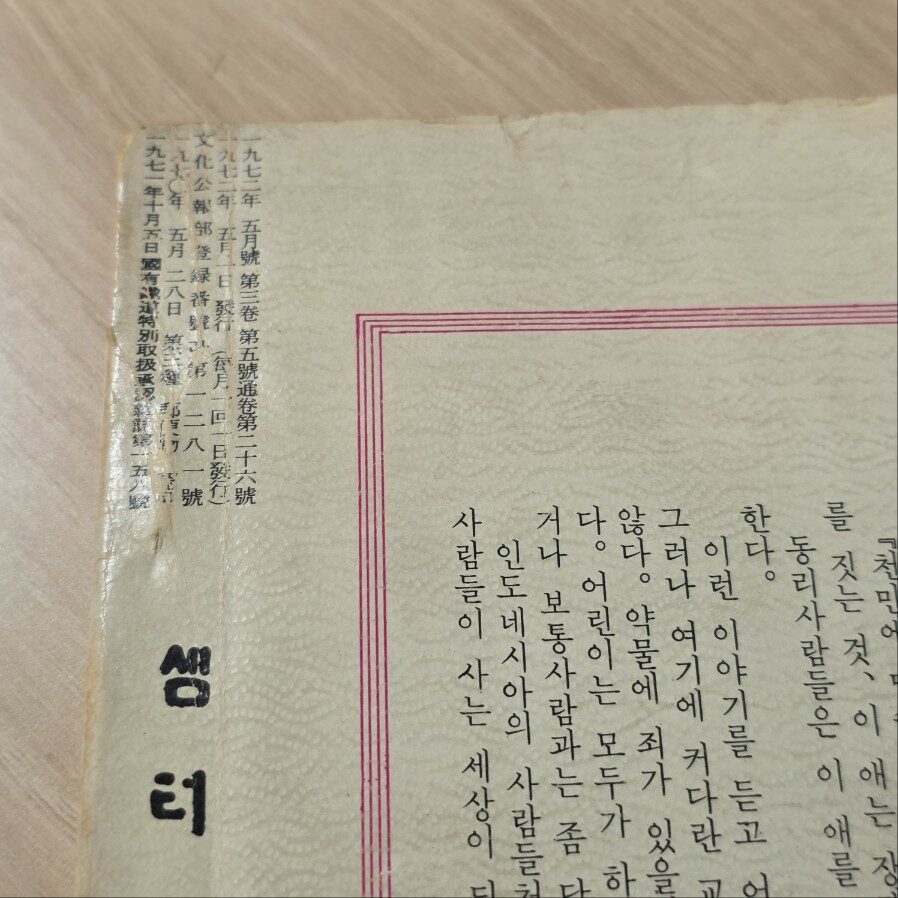 『천민에
를 짓는 것、이 애는 장
동리사람들은 이 애를
한다。
이런 이야기를 듣고 어
그러나 여기에 커다란
않다。약물에 죄가 있을
다。어린이는 모두가 하
거나 보통사람과는 좀
인도네시아의 사람들
사람들이 사는 세상이
一九七二年 五月號 第三卷 第五號通卷第二十六號
一九七二年 五月一日 發行 (每月一回一日發行)
文化公報部登録番號 第一二八一號
一九七〇年 五月 二八日 第三種
一九七一年十月五日 國有鐵道特別取扱 第一五八號
샘터